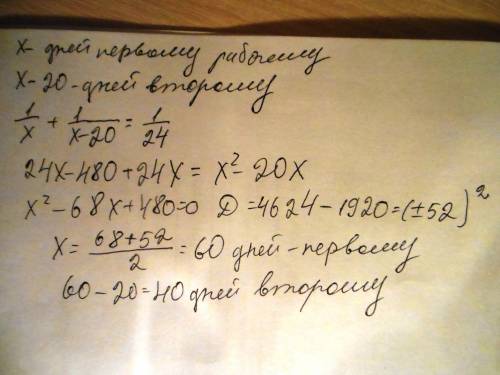 х- дней первому рабочему
х-20-дней второму
1/х + 1/х-20 = 1/24
24х-480+24х = х²-20х
х²-68х+480=0 D=4624-1920=(±52)²
х= 68+52/2 =60 дней-первому
60-20=40 дней второму